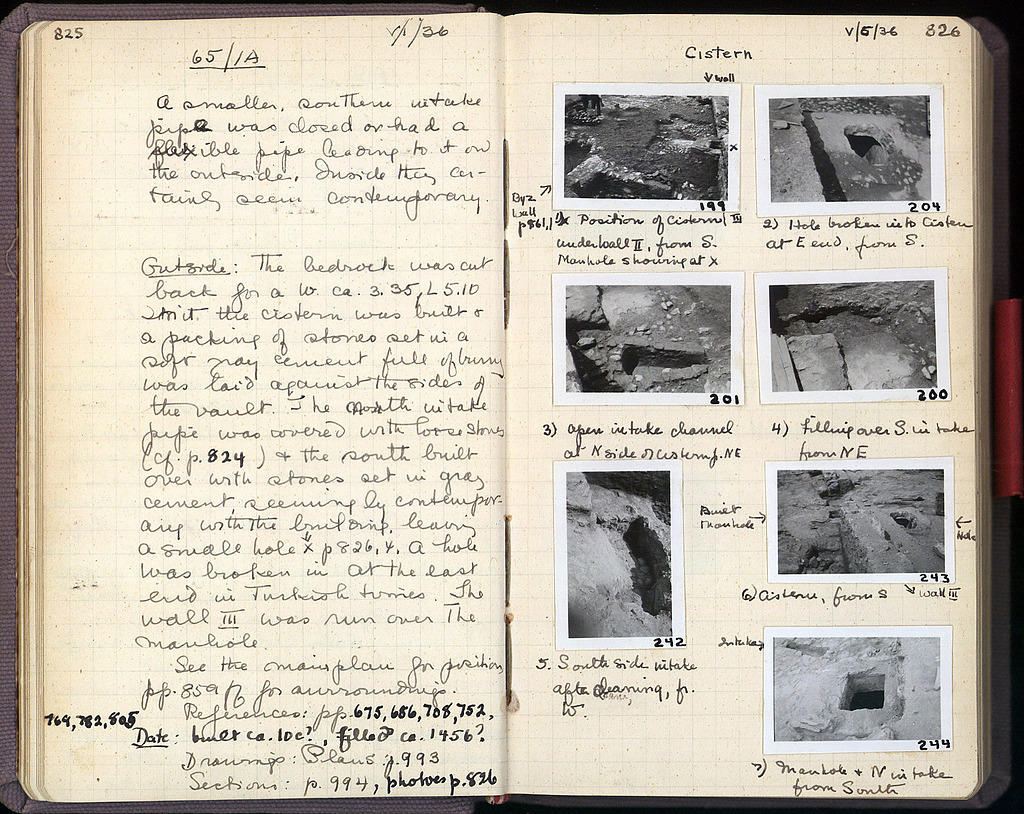 825
V/1/36
65/1A
A smaller, southern intake
pipe was closed or had a
flexible pipe leading to it on
the outside. Inside they cer-
tainly seem contemporary.
Outside: The bedrock was cut
back for a W. ca. 3.35, L 5.10
the cistern was built &
a packing of stones set in a
soft gray cement full of
was laid against the sides of
the vault. The north intake
pipe was covered with loose stones
(cf. p. 824) & the south built
over with stones set in gray
cement, seemingly contempor-
ary with the building, leaving
a small hole "x" p 826, 4. A hole
was broken in at the east
end in Turkish times. The
wall III was run over The
manhole.
See the main plan for position,
pp. 859 ff for surroundings.
References: pp. 675, 686, 708, 752,
764, 782, 805
Date: built ca. 10c?, filled ca. 1456?
Drawings: Plans p. 993
Sections: p. 994, photoes p. 826
V/5/36
826
Cistern
wall
x
199
204
Byz
wall
p861,1
1) Position of Cistern III
under wall II, from S.
Manhole showing at x
2) Hole broken into Cistern
at E end, from S.
201
200
3) open intake channel
at N side of cistern f. NE
4) Filling over S. intake
from NE
Built
Manhole
Hole
243
6) Cistern, from S
wall III
242
5. South side intake
after cleaning, fr.
W.
Intake
244
7) Manhole & N intake
from South